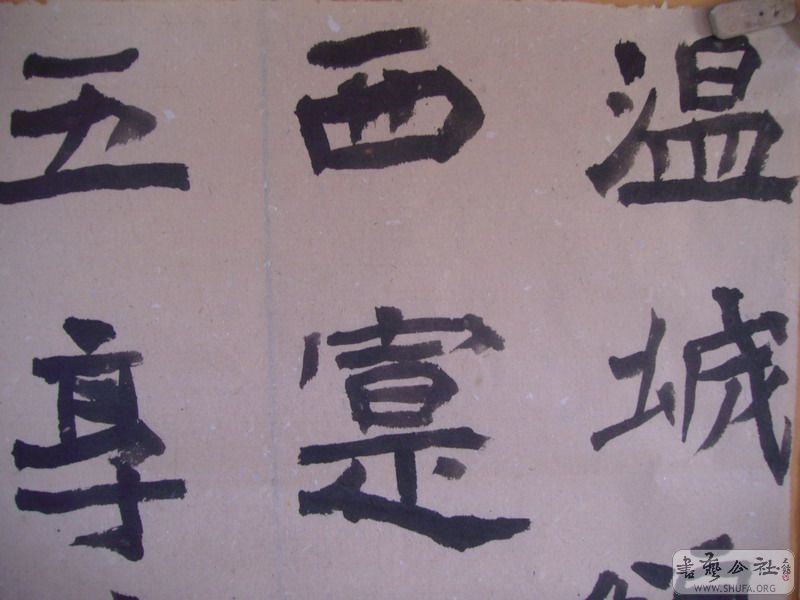 温城
西寔
五享
書藝公社
WWW.SHUFA.ORG